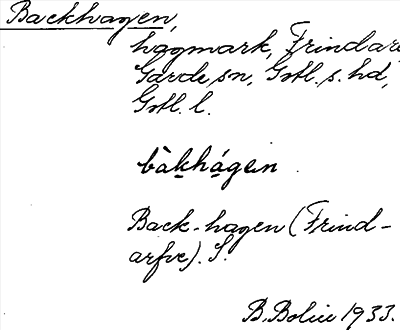 Backhagen,
hagmark, Frindarve
Garde, sn, Gotl. s. hd,
Gotl. l.
bàkhágen
Back-hagen (Frind-
arfve). S.
B. Bolin 1933.